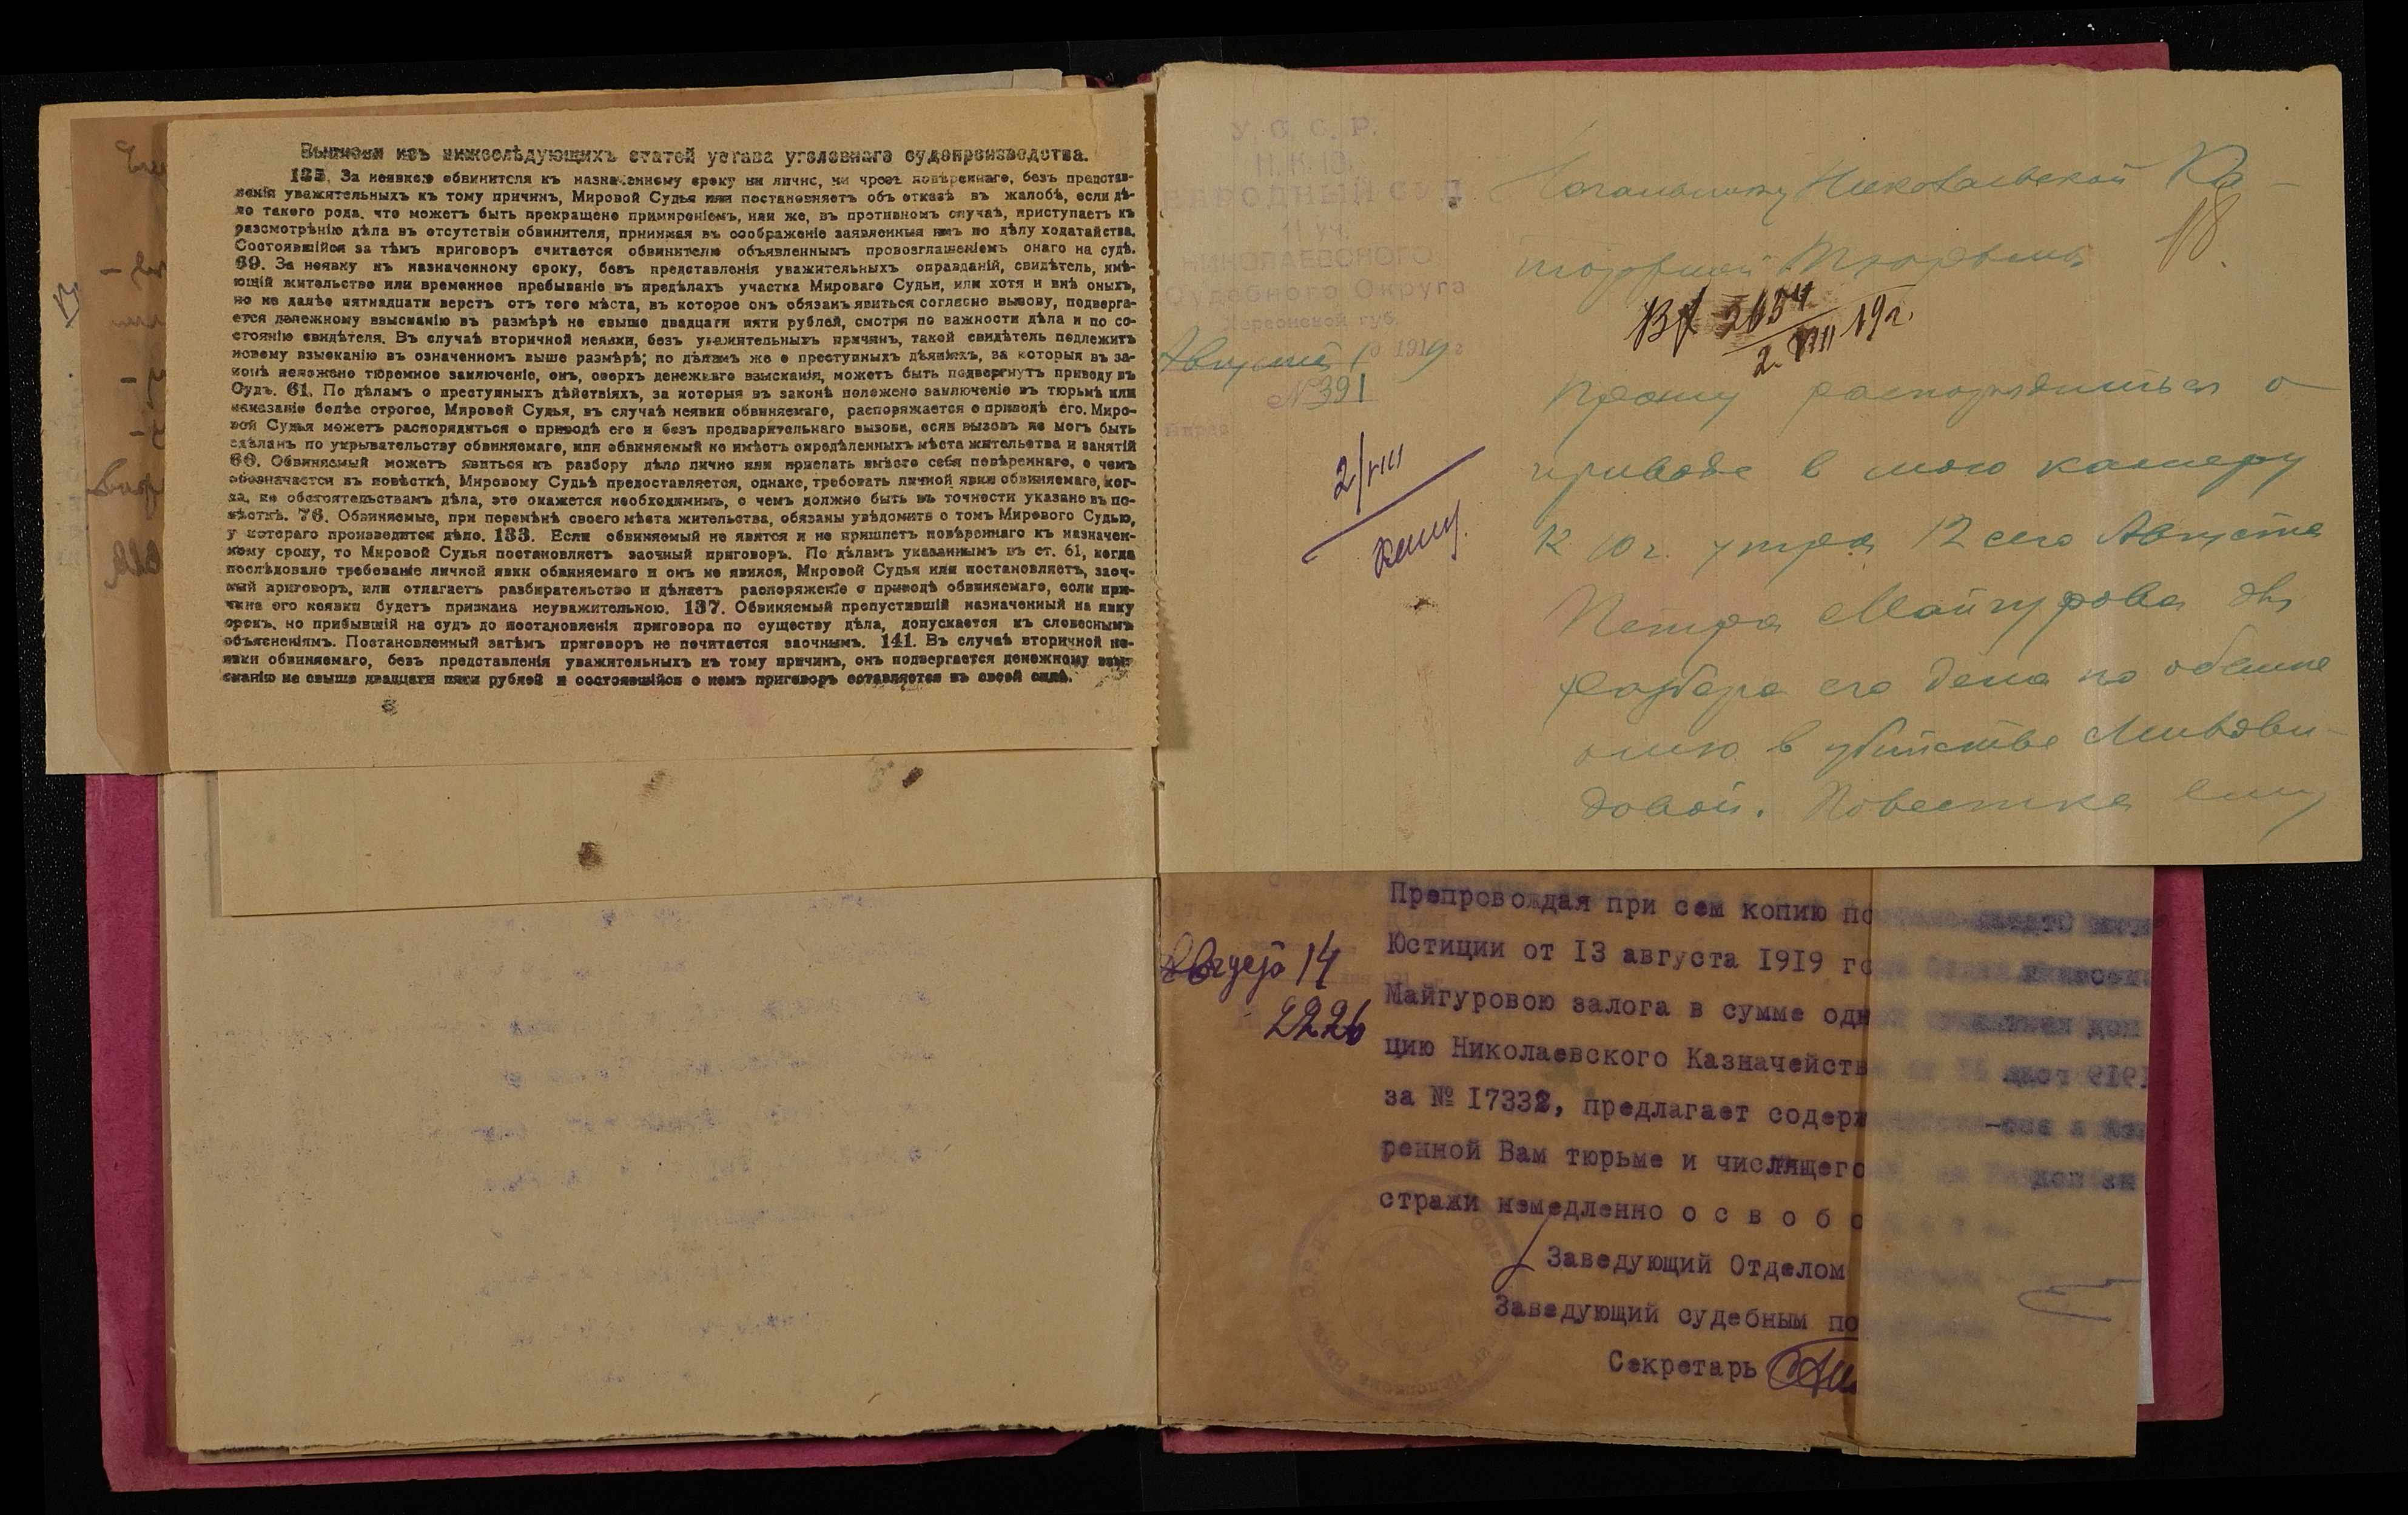 Выписки изъ нижеслѣдующихъ статей устава уголовнаго судопроизводства.
135. За неявкою обвинителя къ назначенному сроку ни лично, ни чрезъ повѣреннаго, безъ представ-
ленія уважительныхъ къ тому причинъ, Мировой Судья или постановляетъ объ отказѣ въ жалобѣ, если дѣ-
ло такого рода, что можетъ быть прекращено примиреніемъ, или же, въ противномъ случаѣ, приступаетъ къ
разсмотрѣнію дѣла въ отсутствіи обвинителя, принимая въ соображеніе заявленныя имъ по дѣлу ходатайства.
Состоявшійся за тѣмъ приговоръ считается обвинителю объявленнымъ провозглашеніемъ онаго на судѣ.
69. За неявку къ назначенному сроку, безъ представленія уважительныхъ оправданій, свидѣтель, имѣ-
ющій жительство или временное пребываніе въ предѣлахъ участка Мироваго Судьи, или хотя и внѣ оныхъ,
но не далѣе пятнадцати верстъ отъ того мѣста, въ которое онъ обязанъ явиться согласно вызову, подверга-
ется денежному взысканію въ размѣрѣ не свыше двадцати пяти рублей, смотря по важности дѣла и по со-
стоянію свидѣтеля. Въ случаѣ вторичной неявки, безъ уважительныхъ причинъ, такой свидѣтель подлежитъ
новому взысканію въ означенномъ выше размѣрѣ; по дѣламъ же о преступныхъ дѣяніяхъ, за которыя въ за-
конѣ положено тюремное заключеніе, онъ, сверхъ денежнаго взысканія, можетъ быть подвергнутъ приводу въ
Судъ. 61. По дѣламъ о преступныхъ дѣйствіяхъ, за которыя въ законѣ положено заключеніе въ тюрьмѣ или
наказаніе болѣе строгое, Мировой Судья, въ случаѣ неявки обвиняемаго, распоряжается о приводѣ его. Миро-
вой Судья можетъ распорядиться о приводѣ его и безъ предварительнаго вызова, если вызовъ не могъ быть
сдѣланъ по укрывательству обвиняемаго, или обвиняемый не имѣетъ опредѣленныхъ мѣста жительства и занятій
66. Обвиняемый можетъ явиться къ разбору дѣла лично или прислать вмѣсто себя повѣреннаго, о чемъ
обозначается въ повѣсткѣ, Мировому Судьѣ предоставляется, однако, требовать личной явки обвиняемаго, ког-
да, по обстоятельствамъ дѣла, это окажется необходимымъ, о чемъ должно быть въ точности указано въ по-
вѣсткѣ. 76. Обвиняемые, при перемѣнѣ своего мѣста жительства, обязаны увѣдомить о томъ Мирового Судью,
у котораго производится дѣло. 133. Если обвиняемый не явится и не пришлетъ повѣреннаго къ назначен-
ному сроку, то Мировой Судья постановляетъ заочный приговоръ. По дѣламъ указаннымъ въ ст. 61, когда
послѣдовало требованіе личной явки обвиняемаго и онъ не явился, Мировой Судья или постановляетъ, заоч-
ный приговоръ, или отлагаетъ разбирательство и дѣлаетъ распоряженіе о приводѣ обвиняемаго, если при-
чина его неявки будетъ признана неуважительною. 137. Обвиняемый пропустившій назначенный на явку
срокъ, но прибывшій на судъ до постановленія приговора по существу дѣла, допускается къ словеснымъ
объясненіямъ. Постановленный затѣмъ приговоръ не почитается заочнымъ. 141. Въ случаѣ вторичной не-
явки обвиняемаго, безъ представленія уважительныхъ къ тому причинъ, онъ подвергается денежному взы-
сканію не свыше двадцати пяти рублей и состоявшійся о немъ приговоръ оставляется въ своей силѣ.
У. С. С. Р.
Н. К. Ю.
НАРОДНЫЙ СУД
11 уч.
НИКОЛАЕВСКОГО
Судебного Округа
Херсонской губ.
Августа 1 1919 г
№ 391
2/VIII
Начальнику Николаевской Ка-
торжной Тюрьмы
18
Вх 2654
2 VIII 19 г.
Прошу распорядиться о
приводе в мою камеру
к 10 ч. утра 12 сего Августа
Петра Майгурова для
разбора его дела по обвине
нию в убийстве
довой. Повестка ему
Препровождая при сем копию по
Юстиции от 13 августа 1919 го
Майгуровою залога в сумме одн
цию Николаевского Казначейств
за № 17332, предлагает содерж
ренной Вам тюрьме и числящего
стражи немедленно о с в о б о
Заведующий Отделом
Заведующий судебным по
Секретарь
Август 14
2226